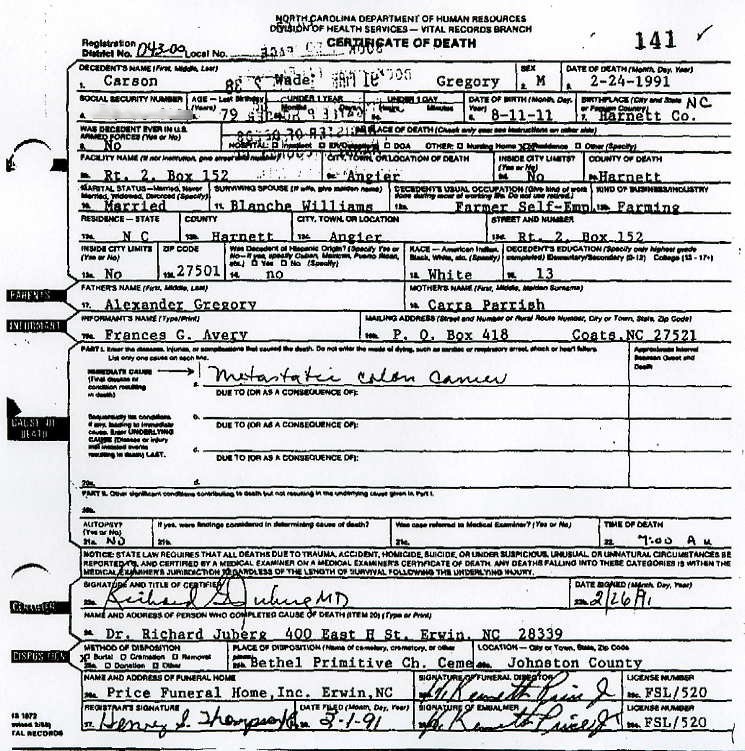 NORTH CAROLINA DEPARTMENT OF HUMAN RESOURCES
DIVISION OF HEALTH SERVICES — VITAL RECORDS BRANCH
CERTIFICATE OF DEATH
141
Registration District No. 043-00 Local No.
DECEDENT'S NAME (First, Middle, Last) SEX DATE OF DEATH (Month, Day, Year)
1. Carson Wade Gregory M 2-24-1991
SOCIAL SECURITY NUMBER AGE — Last Birthday UNDER 1 YEAR UNDER 1 DAY DATE OF BIRTH (Month, Day, Year) BIRTHPLACE (City and State or Foreign Country)
79 Months Days Hours Minutes 8-11-11 7. Harnett Co. NC
WAS DECEDENT EVER IN U.S. ARMED FORCES? (Yes or No) PLACE OF DEATH (Check only one; see instructions on other side)
No HOSPITAL: Inpatient DOA OTHER: Nursing Home Residence Other (Specify)
FACILITY NAME (If not institution, give street and number) CITY, TOWN, OR LOCATION OF DEATH INSIDE CITY LIMITS? (Yes or No) COUNTY OF DEATH
Rt. 2. Box 152 Angier No Harnett
MARITAL STATUS—Married, Never Married, Widowed, Divorced (Specify) SURVIVING SPOUSE (If wife, give maiden name) DECEDENT'S USUAL OCCUPATION (Give kind of work done during most of working life. Do not use retired.) KIND OF BUSINESS/INDUSTRY
10. Married 11. Blanche Williams 12a. Farmer Self-Emp 12b. Farming
RESIDENCE — STATE COUNTY CITY, TOWN OR LOCATION STREET AND NUMBER
13a. N C 13b. Harnett 13c. Angier 13d. Rt. 2, Box 152
INSIDE CITY LIMITS (Yes or No) ZIP CODE Was Decedent of Hispanic Origin? (Specify Yes or No—If yes, specify Cuban, Mexican, Puerto Rican, etc.) Yes No (Specify) RACE — American Indian, Black, White, etc. (Specify) DECEDENT'S EDUCATION (Specify only highest grade completed) Elementary/Secondary (0-12) College (13-17+)
13e. No 13f. 27501 14. no 15. White 16. 13
PARENTS
FATHER'S NAME (First, Middle, Last) MOTHER'S NAME (First, Middle, Maiden Surname)
17. Alexander Gregory 18. Carra Parrish
INFORMANT
INFORMANT'S NAME (Type/Print) MAILING ADDRESS (Street and Number or Rural Route Number, City or Town, State, Zip Code)
19a. Frances G. Avery 19b. P. O. Box 418 Coats, NC 27521
PART I. Enter the diseases, injuries, or complications that caused the death. Do not enter the mode of dying, such as cardiac or respiratory arrest, shock or heart failure. List only one cause on each line. Approximate Interval Between Onset and Death
IMMEDIATE CAUSE (Final disease or condition resulting in death)
a. Metastatic colon cancer
DUE TO (OR AS A CONSEQUENCE OF):
CAUSE OF DEATH
Sequentially list conditions if any, leading to immediate cause. Enter UNDERLYING CAUSE (Disease or injury that initiated events resulting in death) LAST.
b.
DUE TO (OR AS A CONSEQUENCE OF):
c.
DUE TO (OR AS A CONSEQUENCE OF):
20a. d.
PART II. Other significant conditions contributing to death but not resulting in the underlying cause given in Part I.
20b.
AUTOPSY? (Yes or No) If yes, were findings considered in determining cause of death? Was case referred to Medical Examiner? (Yes or No) TIME OF DEATH
21a. No 21b. 21c. 22. 7:00 A M
NOTICE: STATE LAW REQUIRES THAT ALL DEATHS DUE TO TRAUMA, ACCIDENT, HOMICIDE, SUICIDE, OR UNDER SUSPICIOUS, UNUSUAL, OR UNNATURAL CIRCUMSTANCES BE
REPORTED TO, AND CERTIFIED BY A MEDICAL EXAMINER ON A MEDICAL EXAMINER'S CERTIFICATE OF DEATH. ANY DEATHS FALLING INTO THESE CATEGORIES IS WITHIN THE
MEDICAL EXAMINER'S JURISDICTION REGARDLESS OF THE LENGTH OF SURVIVAL FOLLOWING THE UNDERLYING INJURY.
CERTIFIER
SIGNATURE AND TITLE OF CERTIFIER DATE SIGNED (Month, Day, Year)
23a. Richard G. Juberg MD 23b. 2/26/91
NAME AND ADDRESS OF PERSON WHO COMPLETED CAUSE OF DEATH (ITEM 20) (Type or Print)
24. Dr. Richard Juberg 400 East H St. Erwin, NC 28339
DISPOSITION
METHOD OF DISPOSITION PLACE OF DISPOSITION (Name of cemetery, crematory, or other place) LOCATION — City or Town, State, Zip Code
Burial Cremation Removal
Donation Other
Bethel Primitive Ch. Ceme Johnston County
NAME AND ADDRESS OF FUNERAL HOME SIGNATURE OF FUNERAL DIRECTOR LICENSE NUMBER
Price Funeral Home, Inc. Erwin, NC Kenneth Price Jr FSL/520
REGISTRAR'S SIGNATURE DATE FILED (Month, Day, Year) SIGNATURE OF EMBALMER LICENSE NUMBER
27. Henry S. Thompson 3-1-91 Kenneth Price Jr FSL/520
VITAL RECORDS